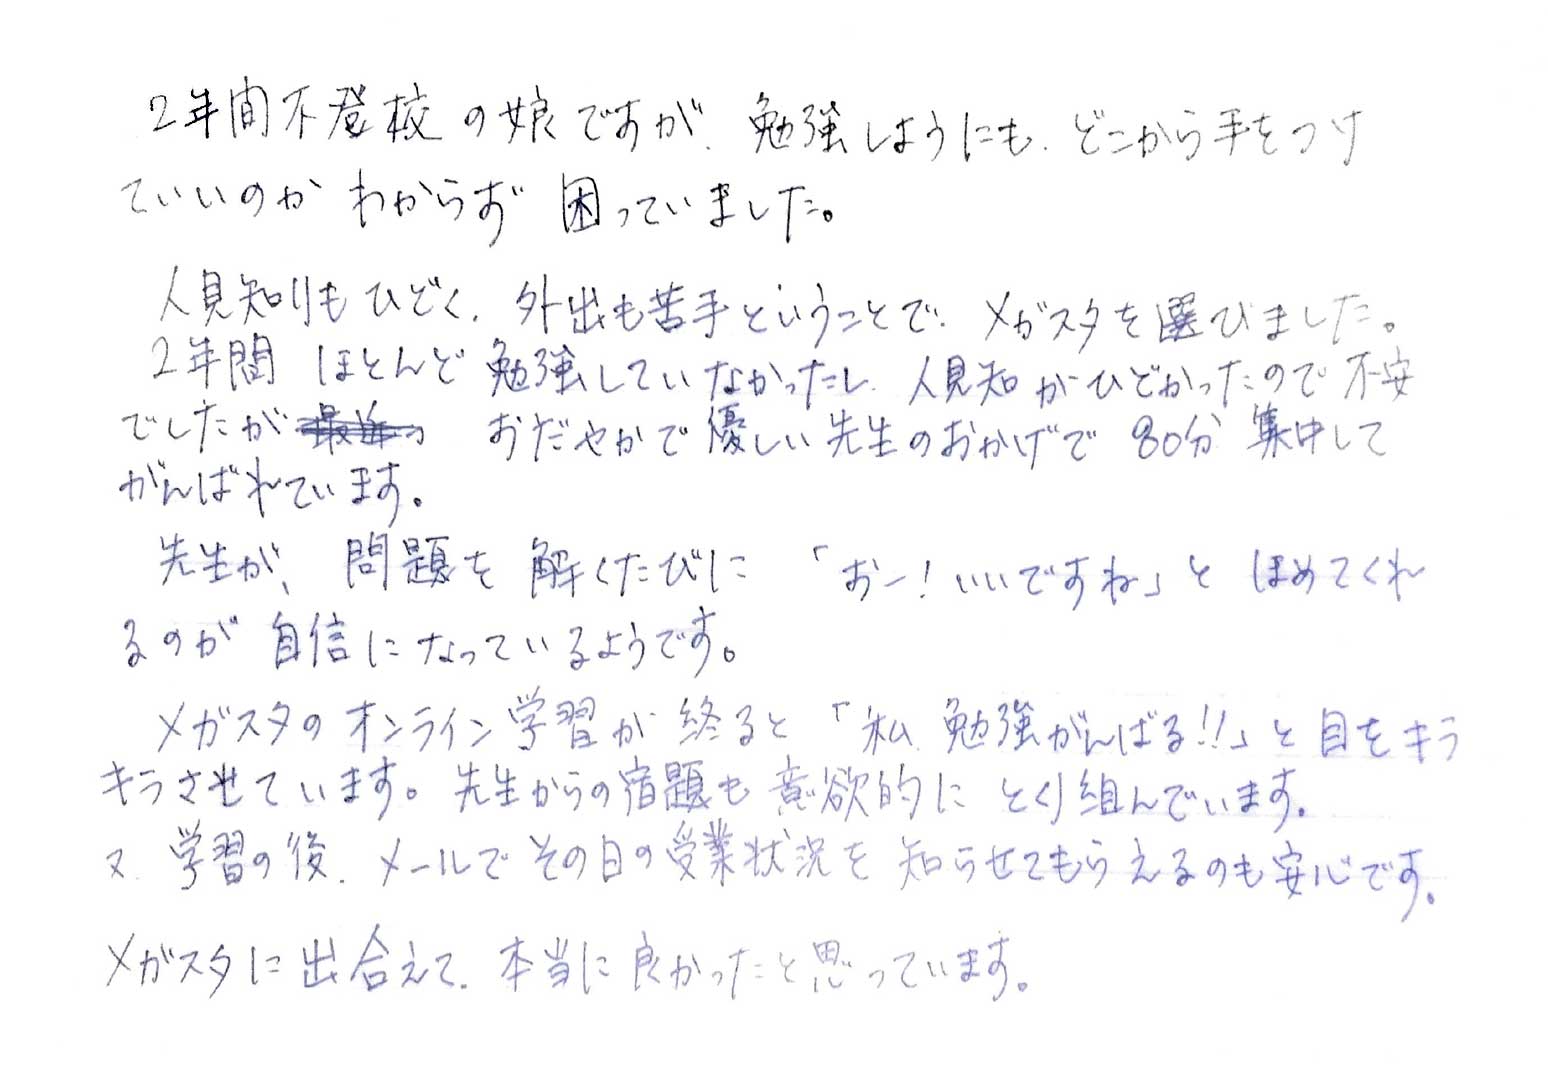 2年間不登校の娘ですが、勉強しようにも、どこから手をつけ
ていいのかわからず困っていました。
人見知りもひどく、外出も苦手ということで、メガスタを選びました。
2年間ほとんど勉強していなかったし、人見知がひどかったので不安
でしたが おだやかで優しい先生のおかげで80分集中して
がんばれています。
先生が、問題を解くたびに「おー!いいですね」とほめてくれ
るのが自信になっているようです。
メガスタのオンライン学習が終ると「私、勉強がんばる!!」と目をキラ
キラさせています。先生からの宿題も意欲的にとり組んでいます。
又、学習の後、メールでその日の受業状況を知らせてもらえるのも安心です。
メガスタに出合えて、本当に良かったと思っています。